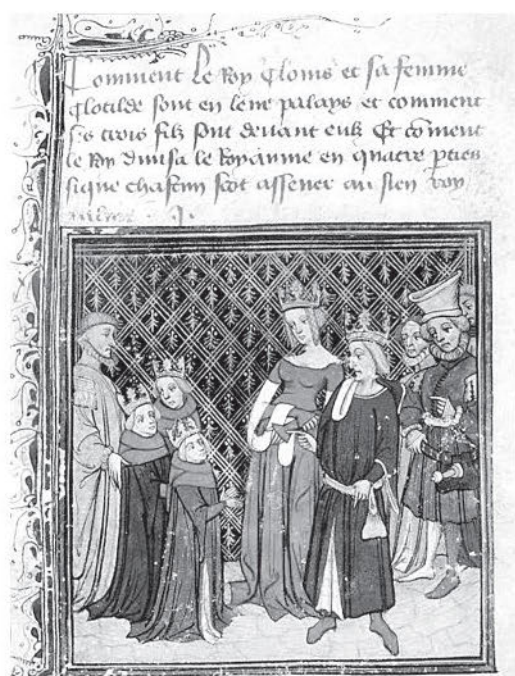 Comment Le Roy Clouis et sa femme
Clotilde sont en leur palays et comment
ses trois filz sont deuant eulx Et coment
le Roy diuisa le Royaume en quatre pties
sique chascun scot assener au sien roy
aulme . I .